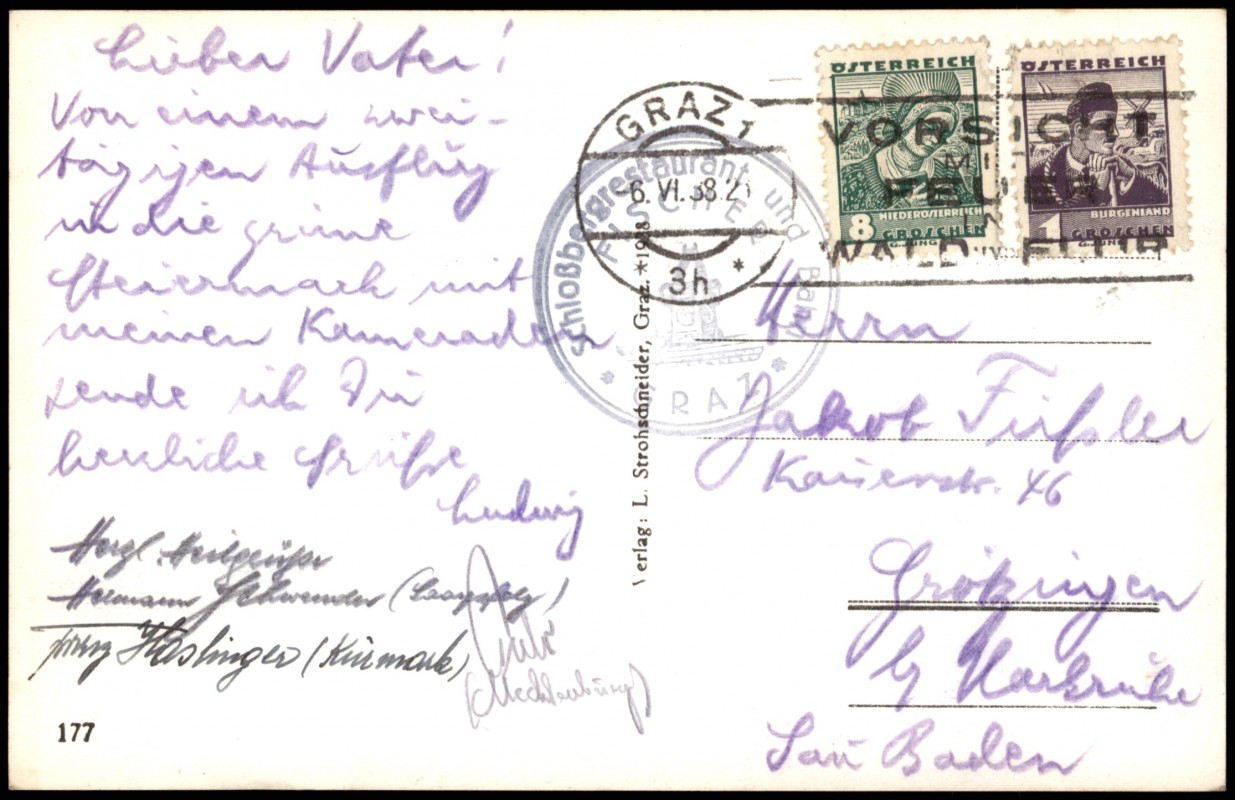 Lieber Vater!
Von einem zwei-
tägigen Ausflug
in die grüne
Steiermark mit
meinen Kameraden
sende ich Dir
herzliche Grüße
Ludwig
Herzl. Heilgrüße
Hermann Schwender (Saarpfalz)
Franz Haslinger (Kurmark)
(Mecklenburg)
177
Verlag: L. Strohschneider, Graz. *1938
Schloßbergrestaurant und Bar
FISCHER
GRAZ
GRAZ 1
-6. VI. 38. 21
3h *
VORSICHT
MIT
FEUER
IN
WALD FLUR
ÖSTERREICH
NIEDERÖSTERREICH
8 GROSCHEN
G. JUNG
ÖSTERREICH
BURGENLAND
1 GROSCHEN
G. JUNG
Herrn
Jakob Füßler
Kaiserstr. 46
Grötzingen
b/ Karlsruhe
Gau Baden